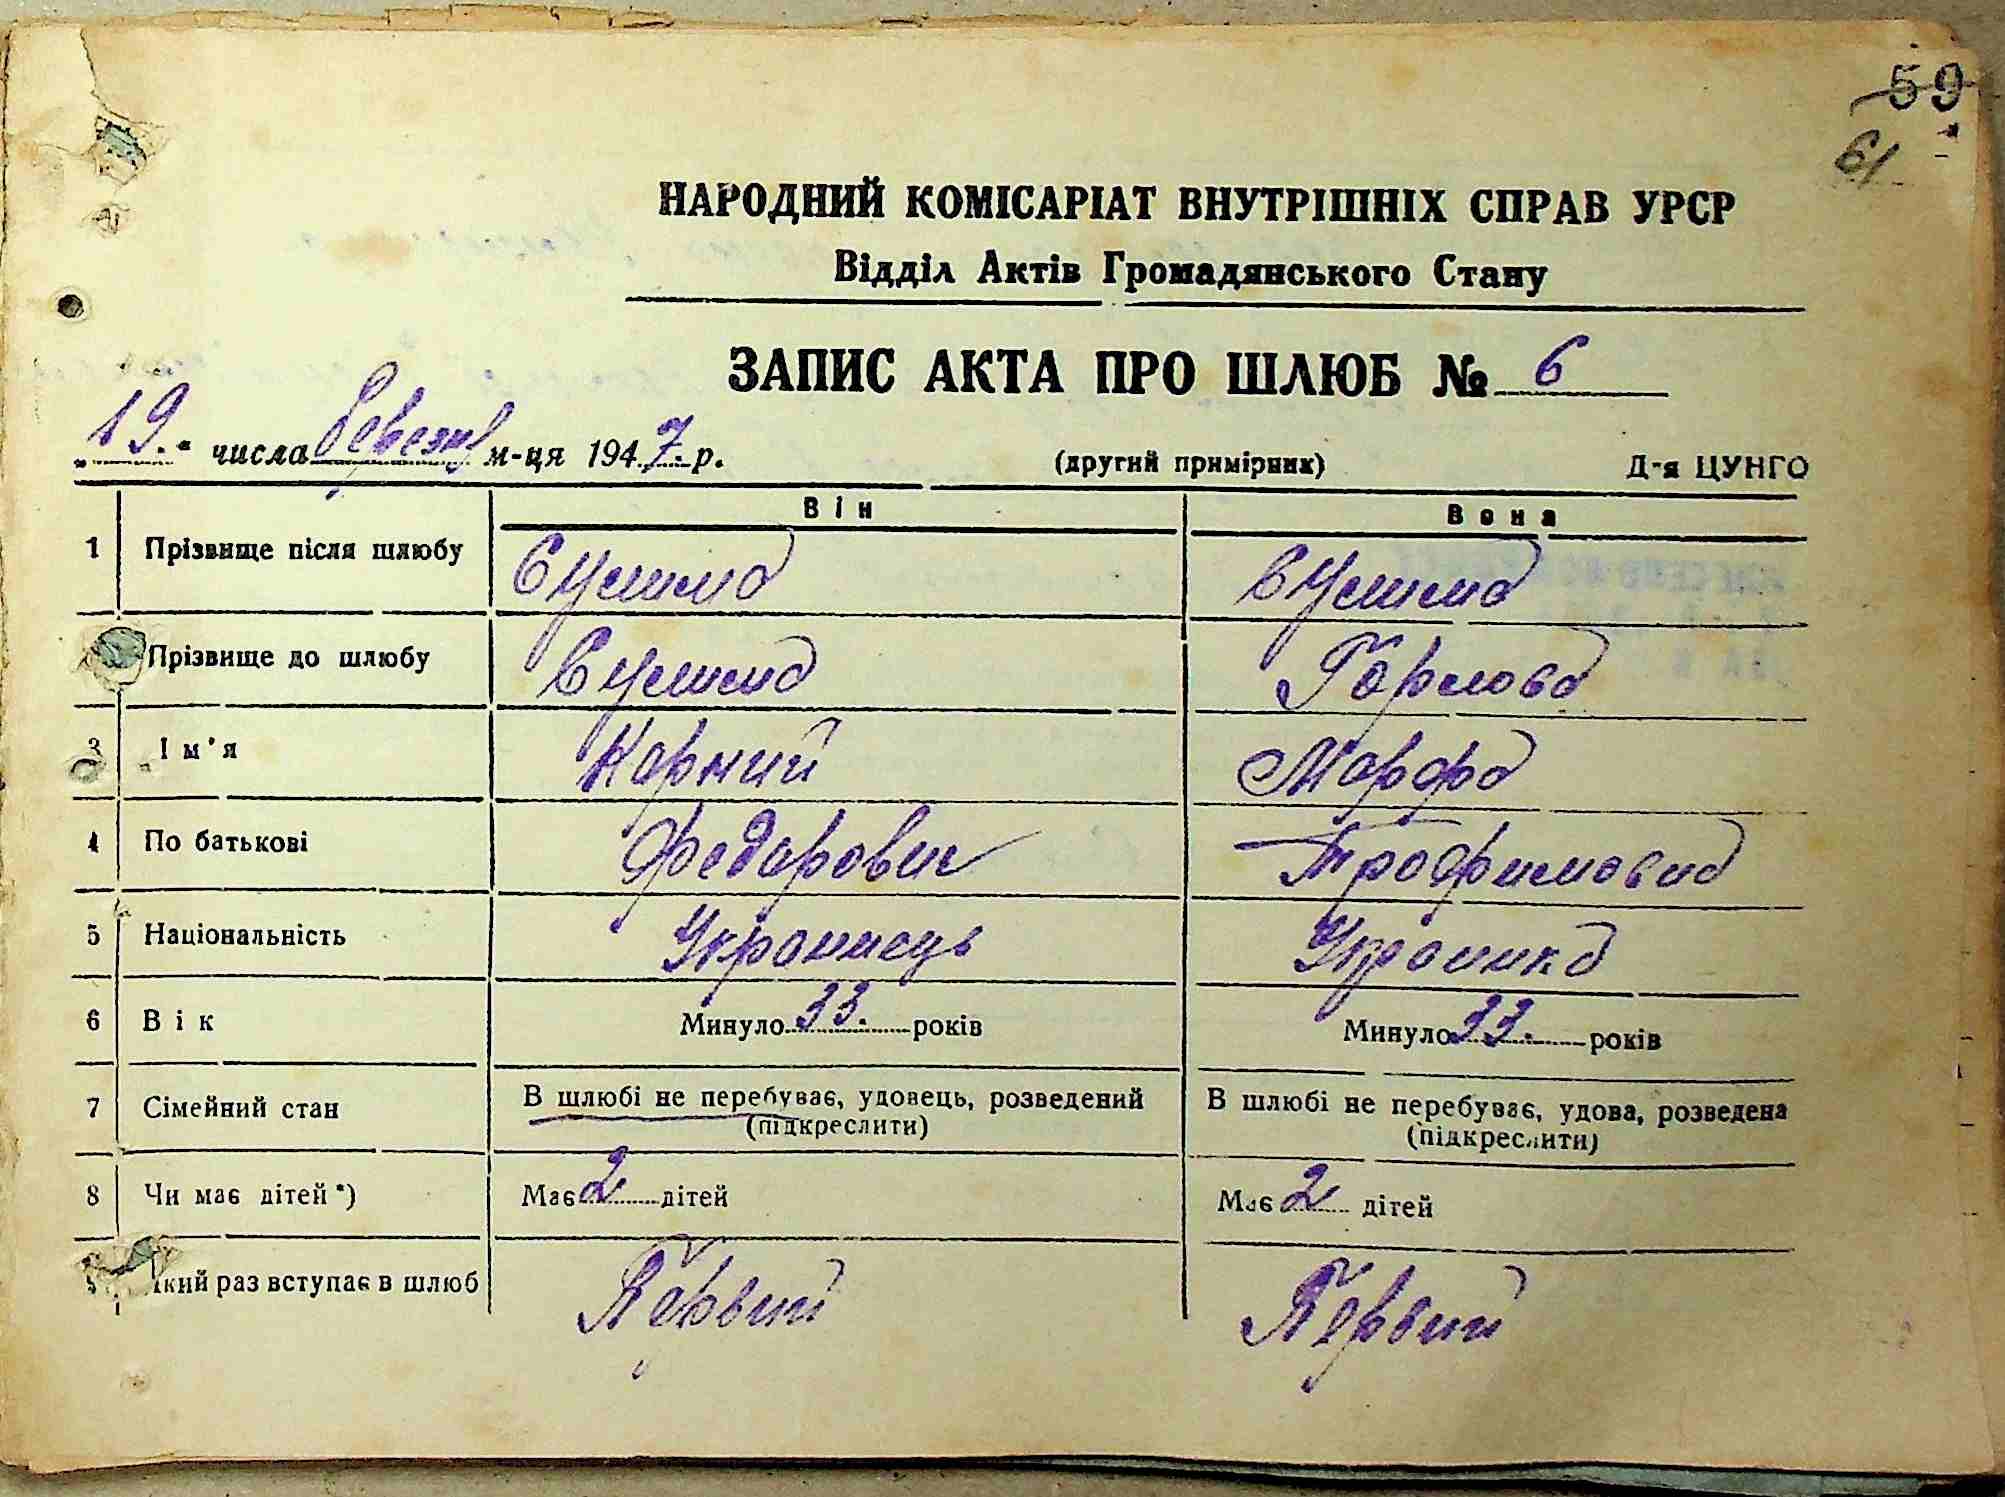 59
61
НАРОДНИЙ КОМІСАРІАТ ВНУТРІШНІХ СПРАВ УРСР
Відділ Актів Громадянського Стану
ЗАПИС АКТА ПРО ШЛЮБ № 6
„19" числа березня м-ця 1947 р. (другий примірник) Д-я ЦУНГО
Він Вона
1 Прізвище після шлюбу
Прізвище до шлюбу Горлова
3 Ім'я Карний Марфа
4 По батькові Федарович Трофимовна
5 Національність Українець Українка
6 Вік Минуло 33. років Минуло 33. років
7 Сімейний стан В шлюбі не перебуває, удовець, розведений В шлюбі не перебуває, удова, розведена
(підкреслити) (підкреслити)
8 Чи має дітей*) Має 2 дітей Має 2 дітей
який раз вступає в шлюб Первий Первий